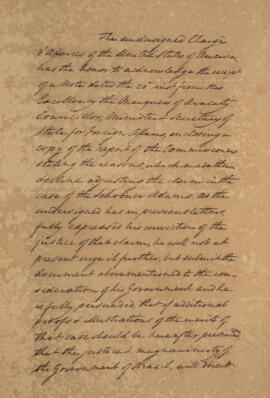 The undersigned Chargé
d'Affaires of the United States of America
has the honor to acknowledge the receipt
of a Note dated the 20 inst from His
Excellency the Marquess of Aracaty
Councillor, Minister & Secretary of
State for Foreign Affairs, enclosing a
copy of the report of the Commissioners
stating the reasons which made them
decline adjusting the claim in the
case of the Schooner Adams. As the
undersigned has in previous letters
fully expressed his conviction of the
justice of that claim, he will not at
present urge it further, but submit the
document above mentioned to the con-
sideration of his Government, and he
is fully persuaded, that if additional
proofs & illustrations of the merits of
that case should be hereafter presented
that the justice & magnanimity of
the Government of Brazil, will direct